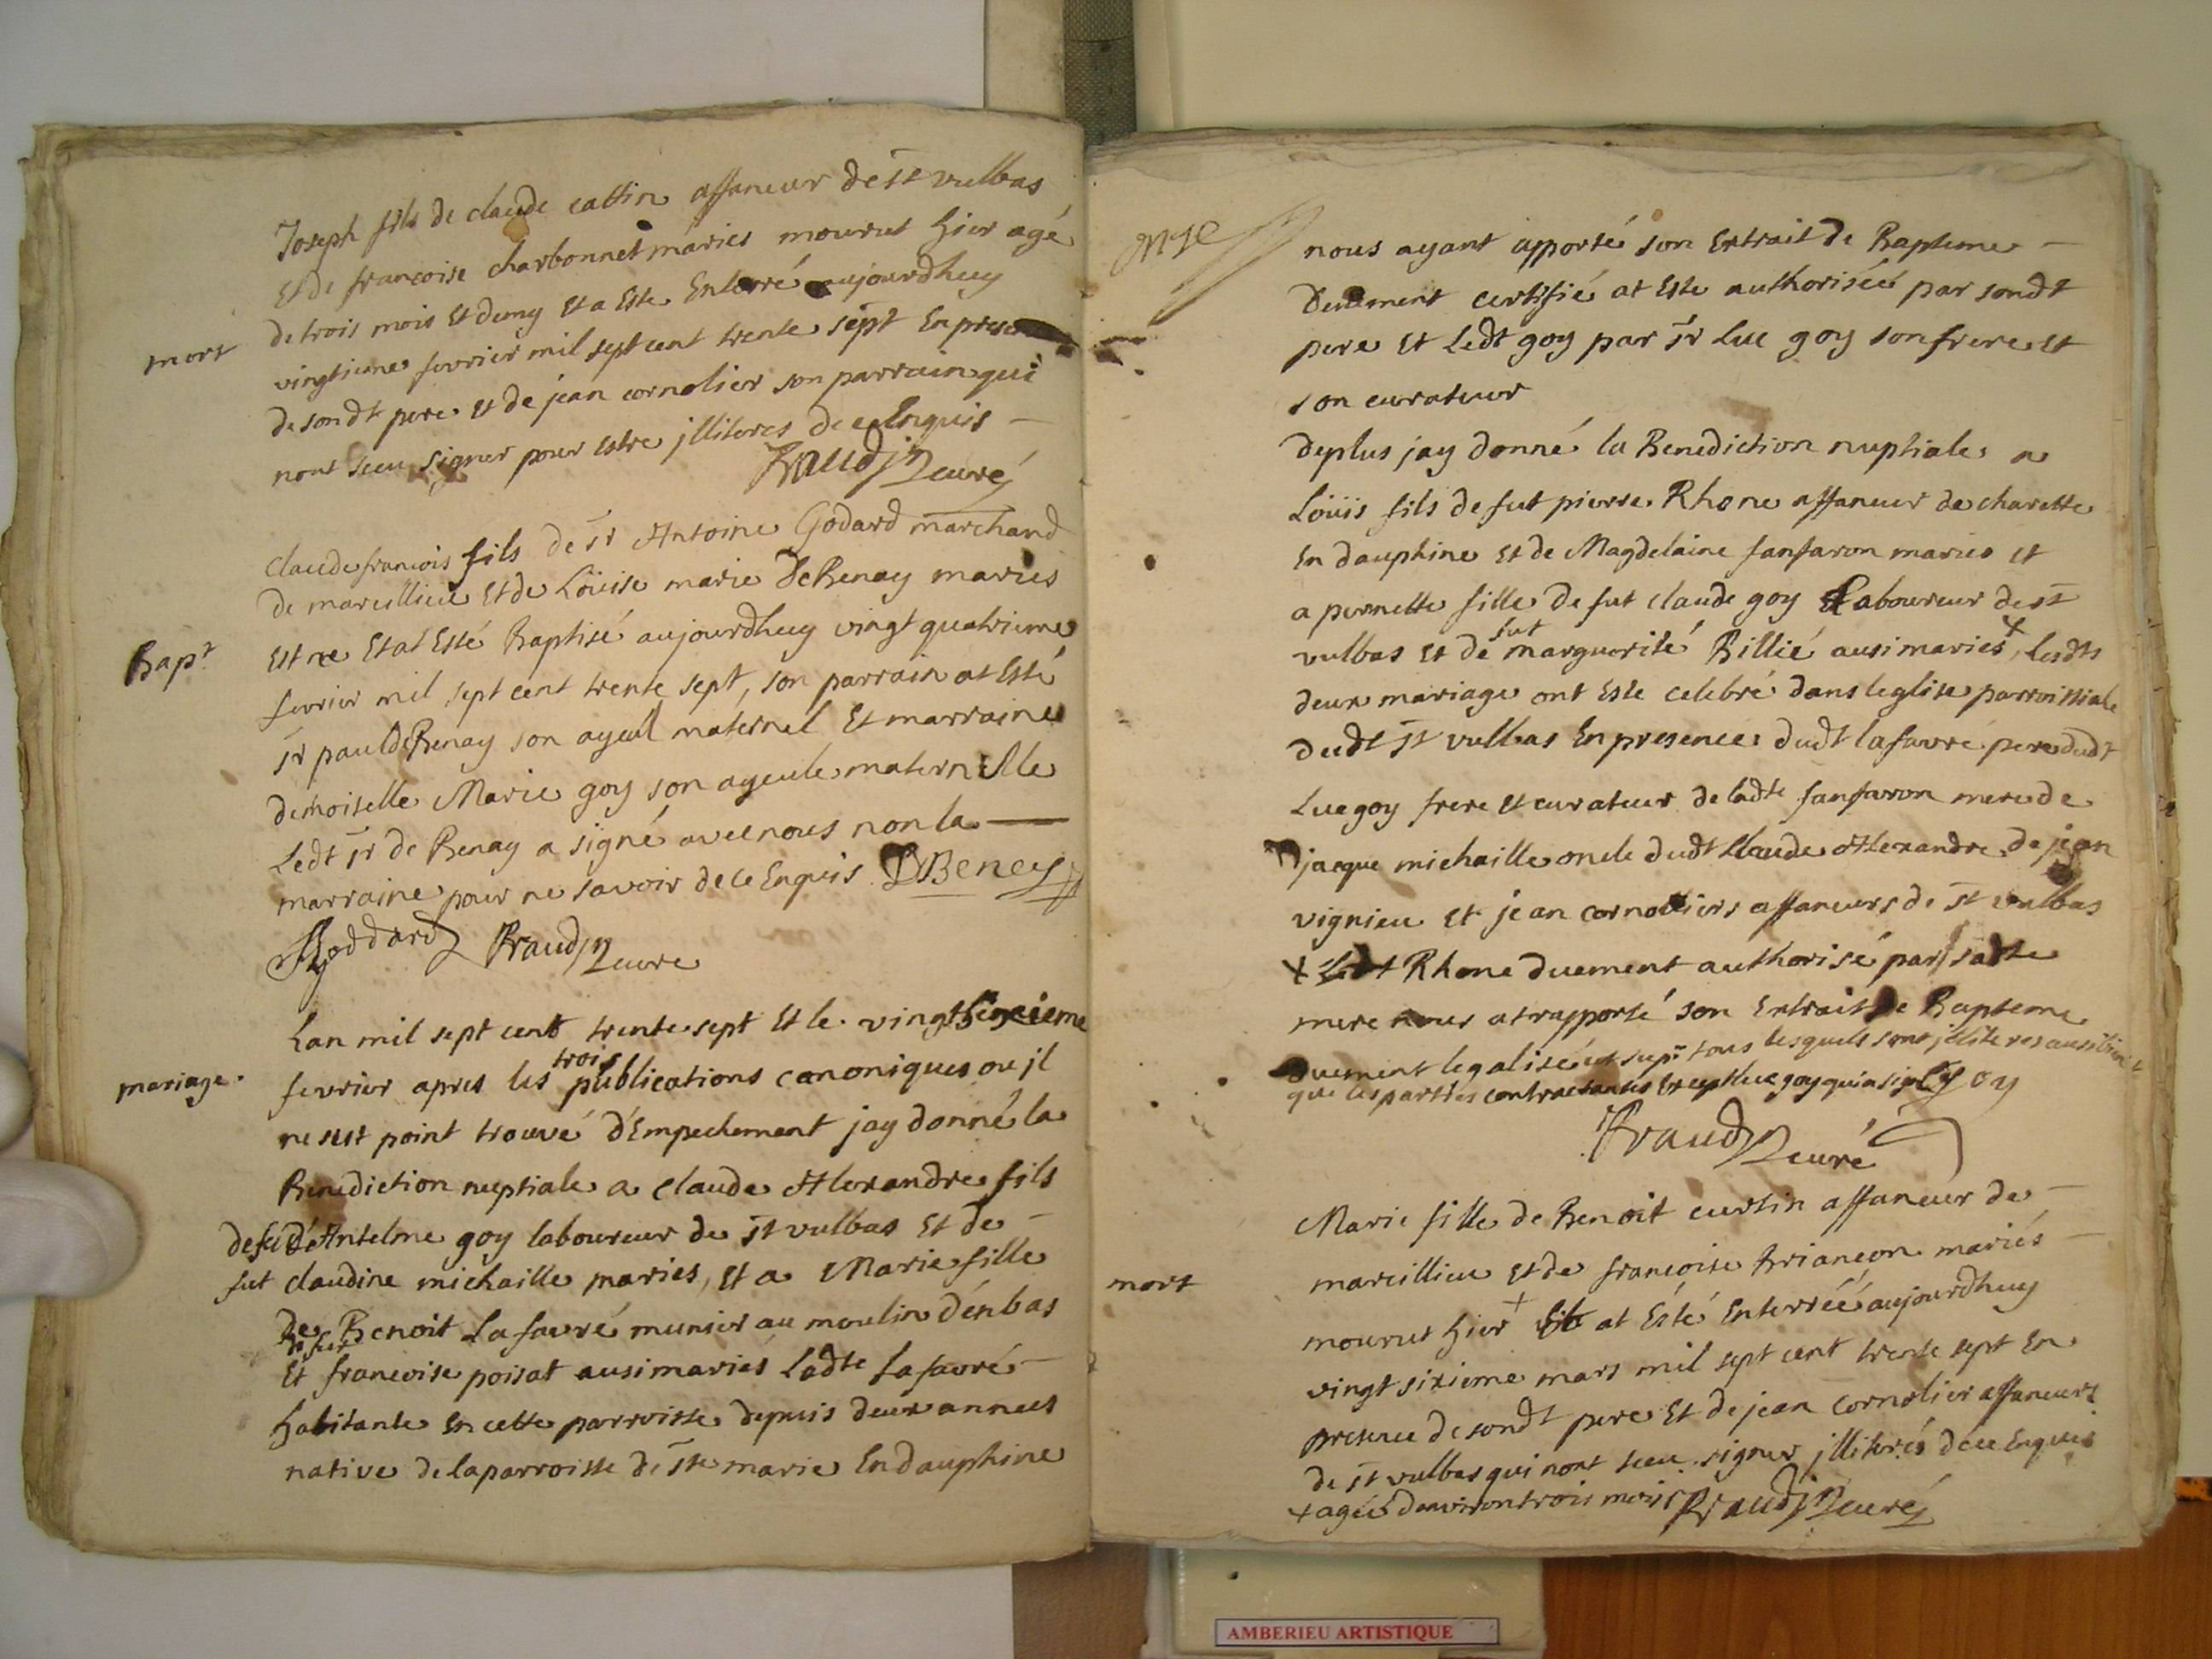 Joseph fils de claude cattin affaneur de st vulbas
Et de francoise charbonnet maries mourut hier agé
de trois mois Et demy Et a Este Enterré aujourdhuy
mort
vingtieme fevrier mil sept cent trente sept En presence
de sondt pere Et de jean cornolier son parrain qui
nont sceu signer pour estre jlliteres de ce Enquis
curé
claude francois fils de sr Antoine Godard marchand
de marcillieu Et de Loüise marie DeBenay maries
Bapt
Est ne Et at Esté Baptisé aujourdhuy vingt quatrieme
fevrier mil sept cent trente sept, son parrain at Esté
sr paul deBenay son ayeul maternel Et marraine
demoiselle Marie goy son ayeule maternelle
Ledt sr de Benay a signé avec nous non la
marraine pour ne savoir de ce Enquis DBeney
Goddard curé
Lan mil sept cent trente sept Et le vingt sixieme
mariage.
fevrier apres les trois publications canoniques ou jl
ne sest point trouvé d'Empechement jay donné la
Benediction nuptiale a claude Alexandre fils
de fut d'Antelme goy laboureur de st vulbas Et de
fut claudine michaille maries, Et a Marie fille
de Benoit Lafavré munier au moulin d'énbas
de fut
Et francoise poisat ausi mariés Ladte Lafavré
habitante En cette parroisse depuis deux annees
native de la parroisse de ste marie En dauphine
nous ayant apporté son Extrait de Bapteme
Deuement certifié at Este authorisée par sondt
pere Et Ledt goy par sr Luc goy son frere Et
son curateur
deplus jay donné la Benediction nuptiale a
Loüis fils de fut pierre Rhone affaneur de charette
En dauphine Et de Magdelaine fanfaron maries Et
a pernette fille de fut claude goy Laboureur de st
vulbas Et de fut marguerite Billié ausi maries +, Lesdts
deux mariage ont Este celebré dans leglise parroissiale
dudt st vulbas En presence dudt lafavre pere dudt
Luc goy frere Et curateur de ladte fanfaron mere de
jacque michaille oncle dudt claude Alexandre de jean
vignieu Et jean cornoliers affaneurs de st vulbas
+ Ledt Rhone duement authorisé par sadte
mere nous at rapporté son Extrait de Bapteme
duement legalisé ut supr. tous lesquels sont jlliteres ausi bien
que les parties contractantes Except Luc goy qui a sig Goy
curé
Marie fille de Benoit curtin affaneur de
marcillieu Et de francoise briancon mariés
mort
mourut hier + at Esté Enterréé aujourdhuy
vingt sixieme mars mil sept cent trente sept En
presence de sondt pere Et de jean cornolier affaneurs
de st vulbas qui nont sceu signer jlliterés de ce Enquis
+ agéé denviron trois mois curé
AMBERIEU ARTISTIQUE